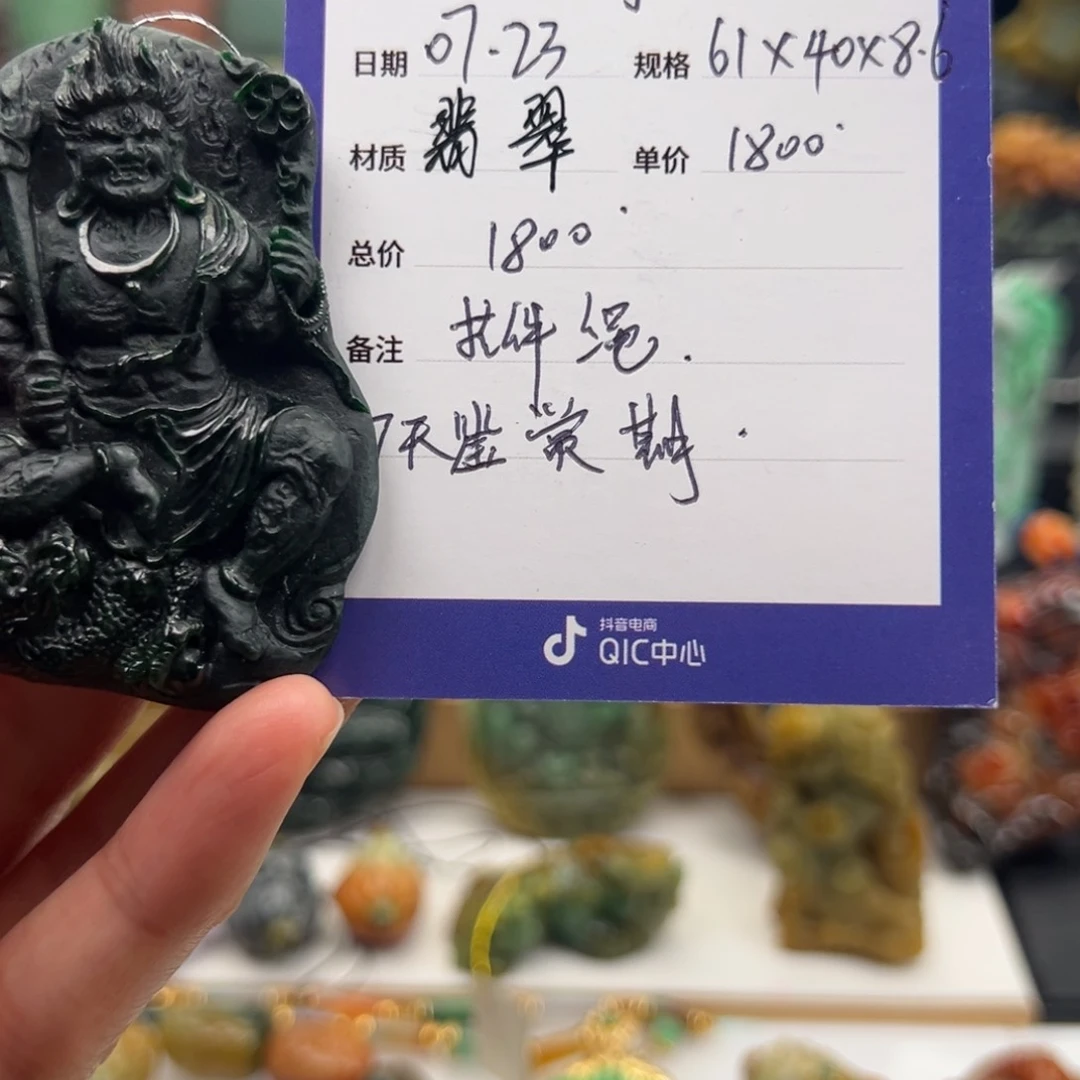 日期 07.23 规格 61×40×8.6
材质 翡翠 单价 1800
总价 1800
备注 挂件绳.
7天鉴赏期.
抖音电商
QIC中心